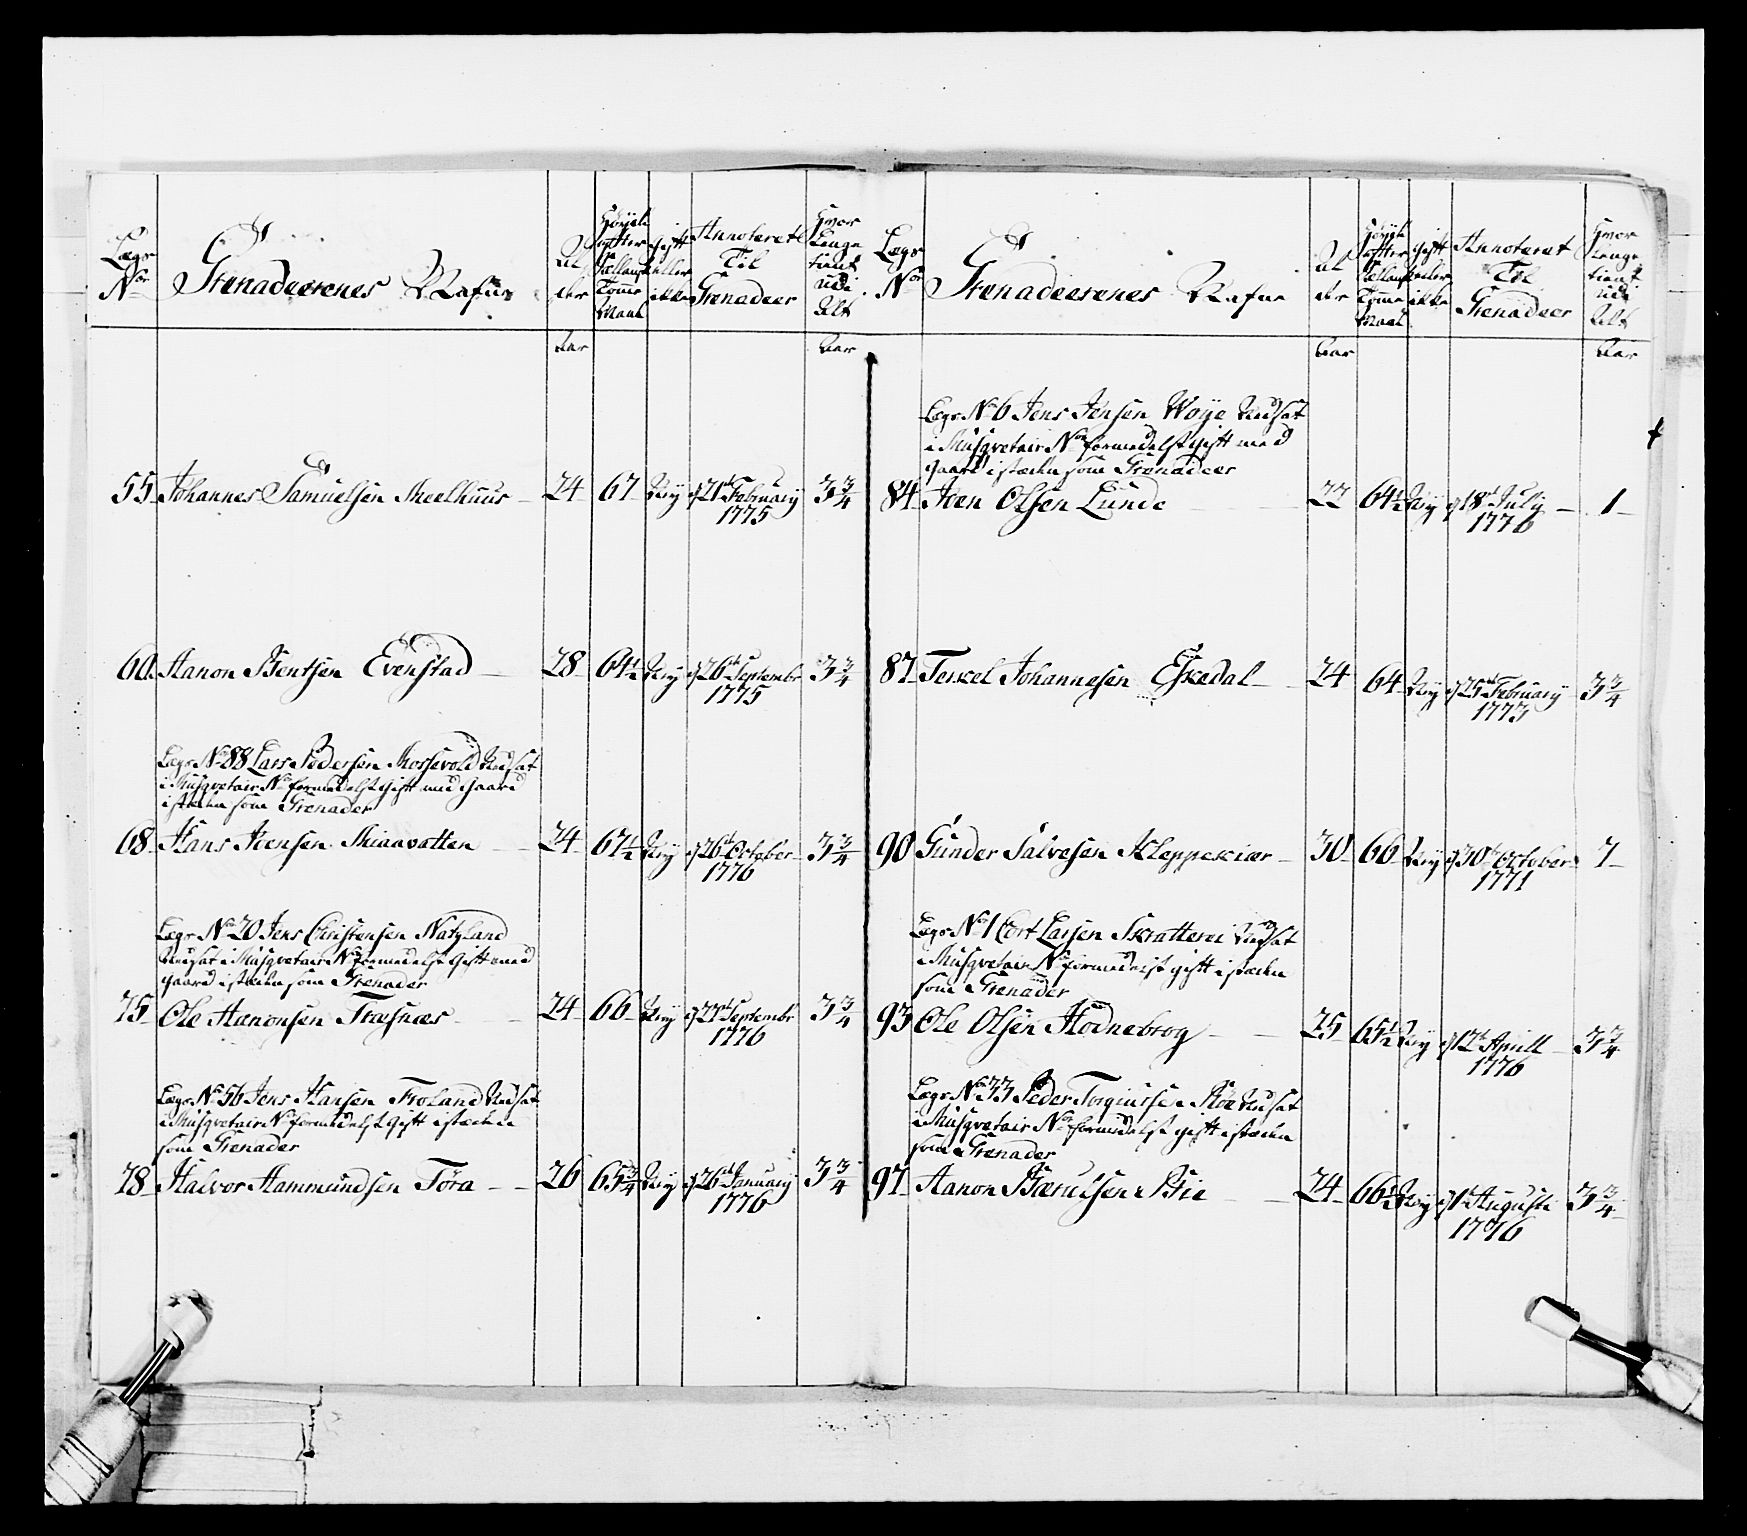 Lægs
Nor
Grenadeerenes Nafne
Al
der
Høyde
efter
Siællands
Tomme
Maal
Gift
eller
ikke
Annoteret
Til
Grenadeer
Hvor
Længe
tient
udi
Alt
Aar
Aar
55 Johannes Samuelsen Meelhuus 24 67 Ney d 21 February 3 3/4
1775
60 Aanon Bentsen Evenstad 28 64 1/2 Ney d 26 Septembr 3 3/4
1775
Lægs No 88 Lars Pedersen Mossevold Udsat
i Musqvetair No formedelst Gift med Gaard
isteden som Grenader
68 Hans Jensen Miaavatten 24 67 1/2 Ney d 26 October 3 3/4
1776
Lægs No 20 Jens Christensen Natvland
Udsat i Musqvetair No formedelst Gift med
gaard isteden som Grenader
75 Ole Aanonsen Træsnæs 24 66 Ney d 27 Septembr 3 3/4
1776
Lægs No 56 Jens Hansen Froland Udsat
i Musqvetair No formedelst Gift isteden
som Grenader
78 Halvor Aammundsen Tøra 26 65 3/4 Ney d 26 January 3 3/4
1776
Lægs
Nor
Grenadeerenes Nafne
Al
der
Høyde
efter
Siællands
Tomme
Maal
Gift
eller
ikke
Annoteret
Til
Grenadeer
Hvor
Længe
tient
udi
Alt
Aar
Aar
Lægs No 6 Jens Jensen Woye Udsat
i Musqvetair No formedelst Gift med
Gaard isteden som Grenadeer
84 Iven Olsen Lunde 22 64 1/2 Ney d 18 July 1
1776
87 Terkel Johannesen Eskedal 24 64 Ney d 25 February 3 3/4
1773
90 Gunder Salvesen Kleppekiær 30 66 Ney d 30 October 7
1771
Lægs No 1 Cort Larsen Skratterei Udsat
i Musqvetair No formedelst gift isteden
som Grenader
93 Ole Olsen Hodnebrog 25 65 1/2 Ney d 12 Aprill 3 3/4
1776
Lægs No 33 Peder Torgiussen Møe Udsat
i Musqvetair No formedelst gift isteden
som Grenader
97 Aanon Bærulsen Bie 24 66 1/2 Ney d 1 Augusti 3 3/4
1776